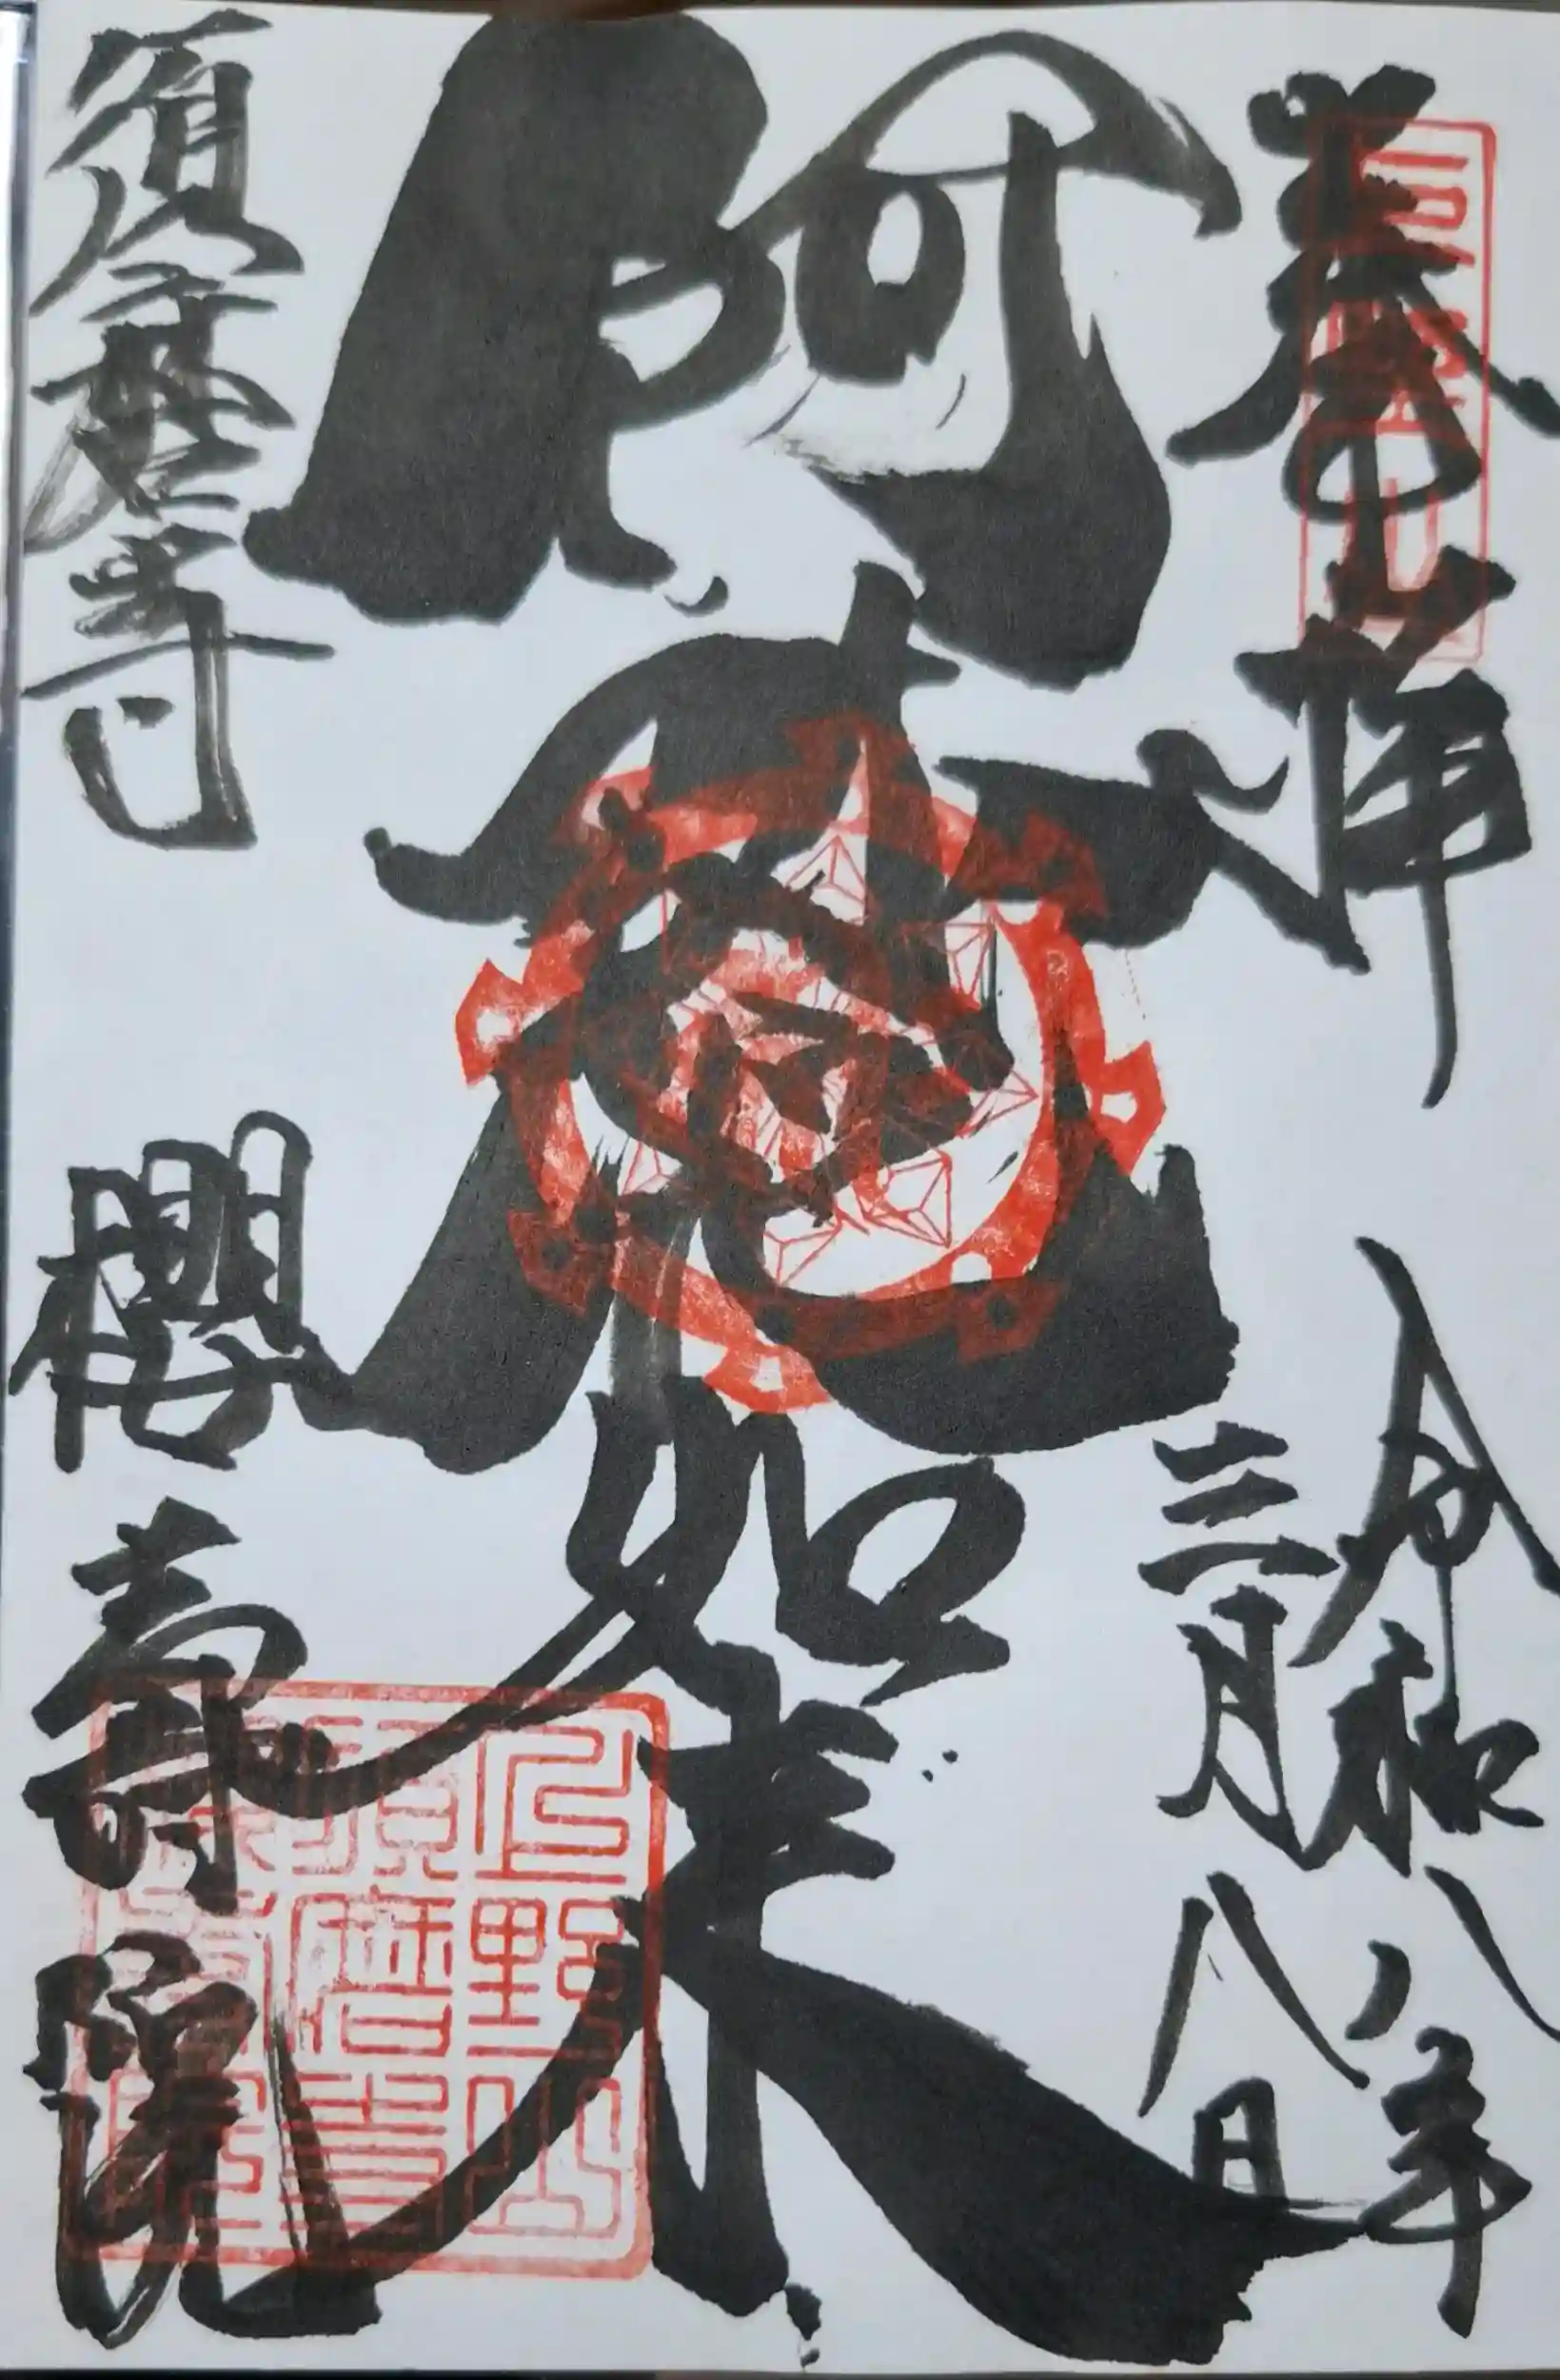 奉拝
令和八年
三月八日
阿閦如来
須磨寺
櫻壽院
上野山
須磨寺